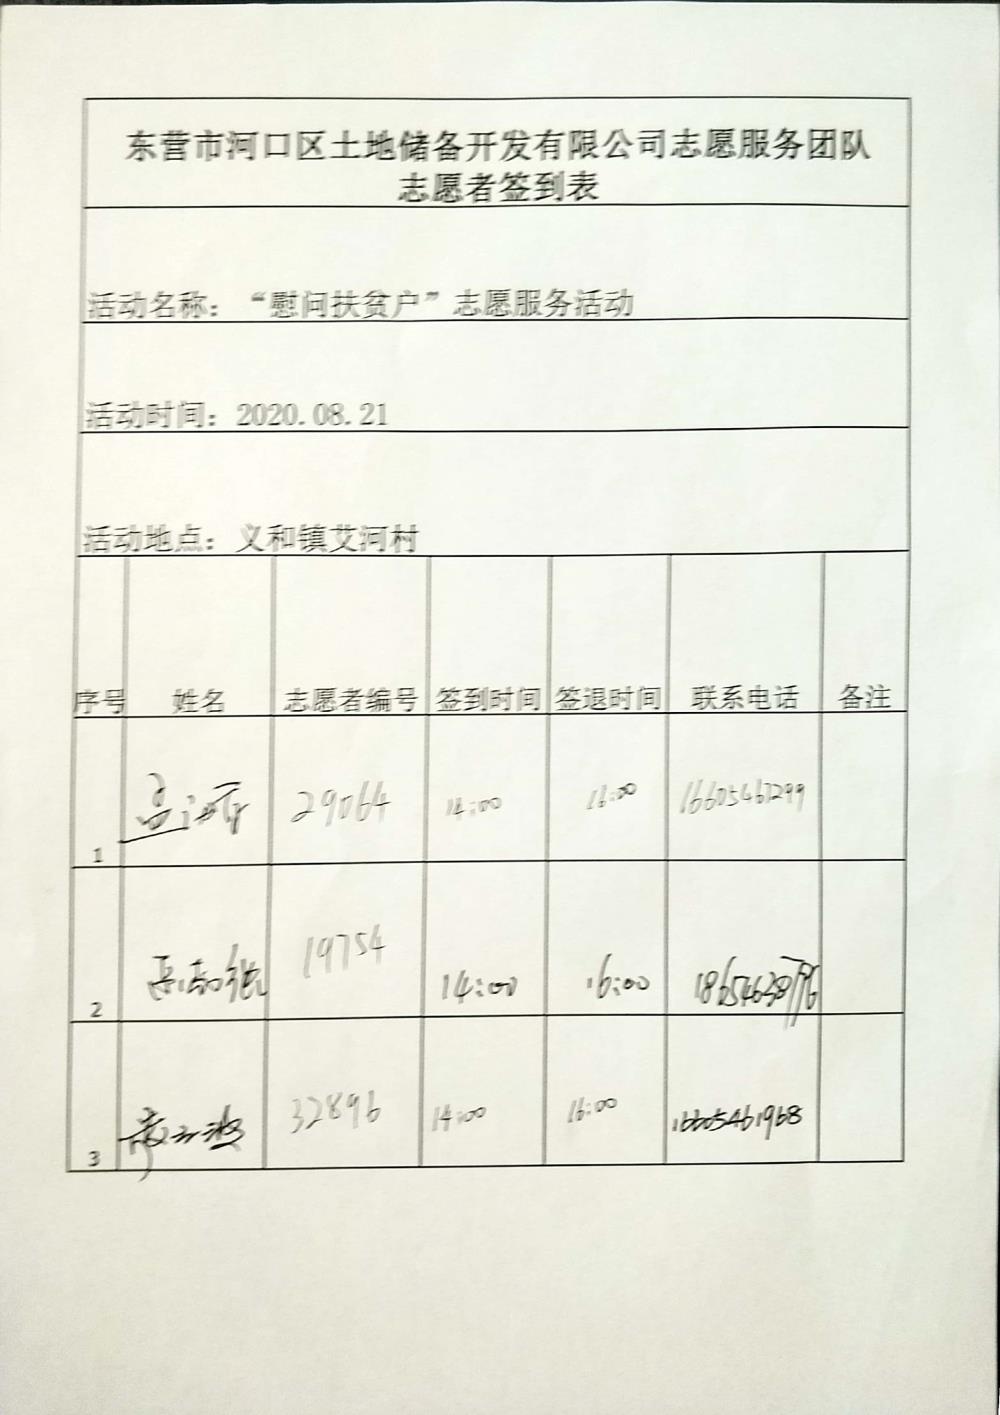 东营市河口区土地储备开发有限公司志愿服务团队
志愿者签到表
活动名称：“慰问扶贫户”志愿服务活动
活动时间：2020.08.21
活动地点：义和镇艾河村
序号 姓名 志愿者编号 签到时间 签退时间 联系电话 备注
1 29064 14:00 16:00 16605461299
2 19754 14:00 16:00
3 32896 14:00 16:00 16605461968